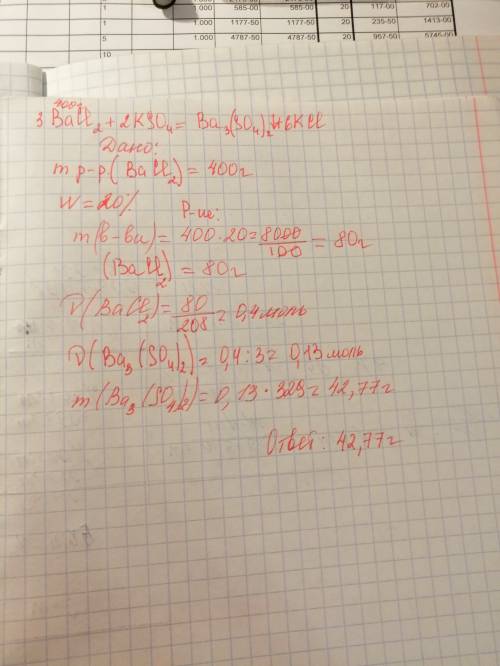 1 585-00 585-00 20 117-00 702-00
1 1.000 1177-50 1177-50 20 235-50 1413-00
5 1.000 4787-50 4787-50 20 957-50 5745-00
10
400г
3 BaCl2 + 2KSO4 = Ba3(SO4)2 + 6KCl
Дано:
m р-р (BaCl2) = 400г
W = 20% Р-ие:
m(в-ва) = 400·20 = 8000/100 = 80г
(BaCl2) = 80г
ν(BaCl2) = 80/208 = 0,4 моль
ν(Ba3(SO4)2) = 0,4 : 3 = 0,13 моль
m(Ba3(SO4)2) = 0,13 · 329 = 42,77г
Ответ: 42,77г